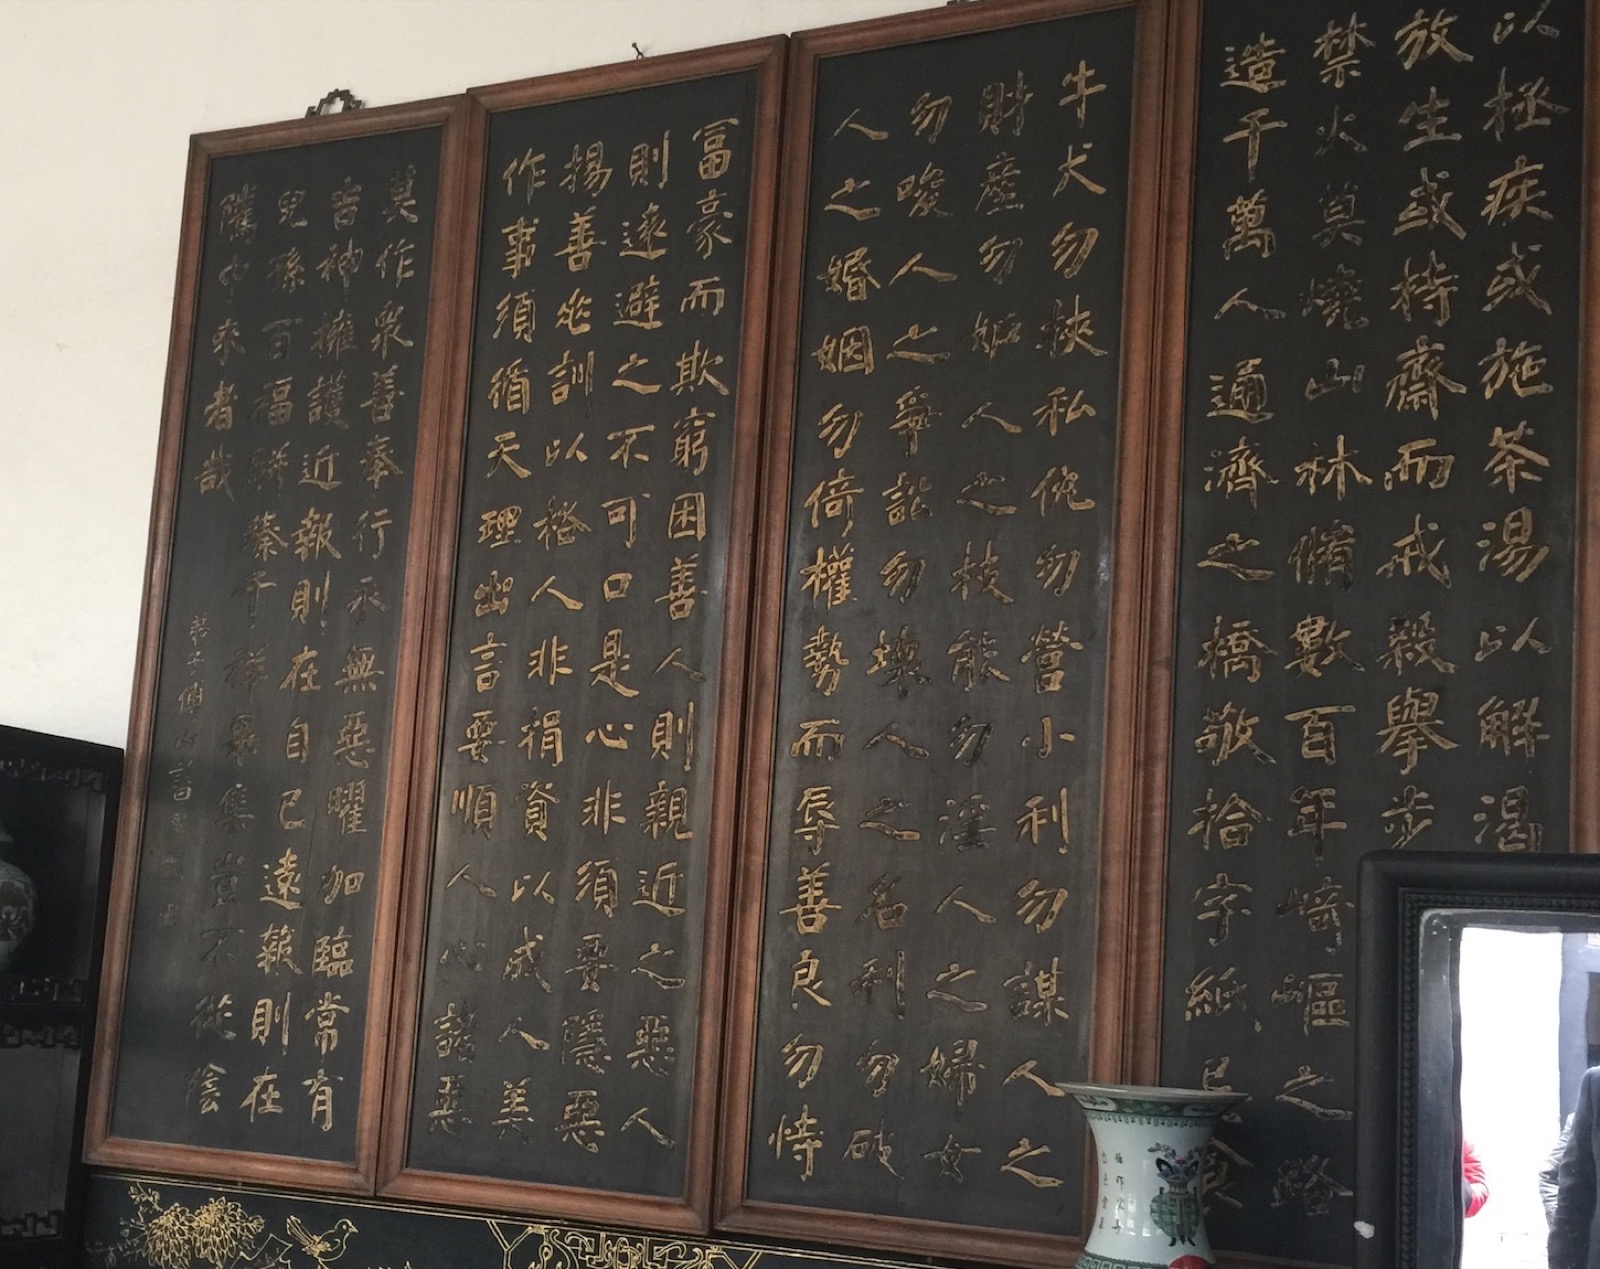 以拯疾或施茶湯以解渴
放生或持齋而戒殺舉步
禁火莫燒山林脩數百年崎嶇之路
造千萬人通濟之橋敬拾字紙
牛犬勿挾私仇勿營小利勿謀人之
財產勿妬人之技能勿淫人之婦女
勿唆人之爭訟勿壞人之名利勿破
人之婚姻勿倚權勢而辱善良勿恃
冨豪而欺窮困善人則親近之惡人
則遠避之不可口是心非須要隱惡
揚善垂訓以格人非捐資以成人美
作事須循天理出言要順人心諸惡
莫作衆善奉行永無惡曜加臨常有
吉神擁護近報則在自己遠報則在
兒孫百福駢臻千祥畢集豈不從陰
隲中來者哉
書